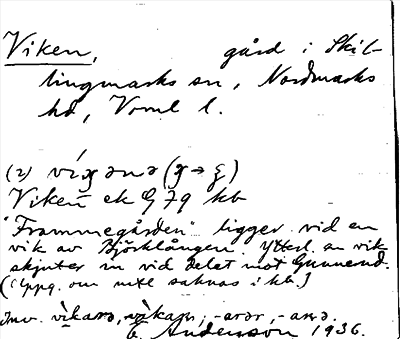 Viken, gård i Skil-
lingmarks sn, Nordmarks
hd, Vrml l.
(2)
Viken ek G 79 kb
"Frammegården" ligger vid en
vik av Björklången. Ytterl. en vik
skjuter in vid delet mot Gunnerud.
(Uppg. om mtl saknas i kb.)
Inv. -arər, -arə
E. Andersson 1936.